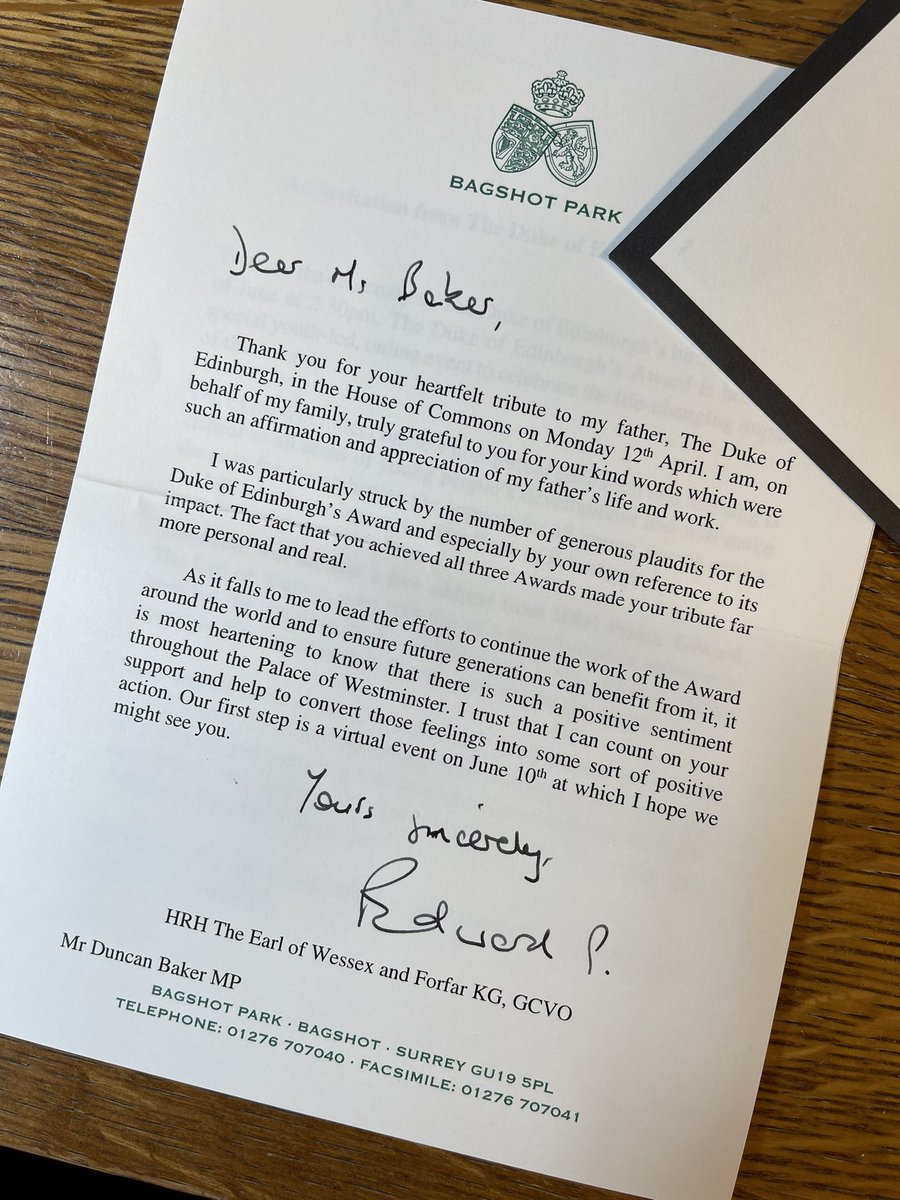 BAGSHOT PARK
Dear Mr Baker,
Thank you for your heartfelt tribute to my father, The Duke of
Edinburgh, in the House of Commons on Monday 12th April. I am, on
behalf of my family, truly grateful to you for your kind words which were
such an affirmation and appreciation of my father's life and work.
I was particularly struck by the number of generous plaudits for the
Duke of Edinburgh's Award and especially by your own reference to its
impact. The fact that you achieved all three Awards made your tribute far
more personal and real.
As it falls to me to lead the efforts to continue the work of the Award
around the world and to ensure future generations can benefit from it, it
is most heartening to know that there is such a positive sentiment
throughout the Palace of Westminster. I trust that I can count on your
support and help to convert those feelings into some sort of positive
action. Our first step is a virtual event on June 10th at which I hope we
might see you.
Yours sincerely,
Edward P.
HRH The Earl of Wessex and Forfar KG, GCVO
Mr Duncan Baker MP
BAGSHOT PARK · BAGSHOT · SURREY GU19 5PL
TELEPHONE: 01276 707040 · FACSIMILE: 01276 707041